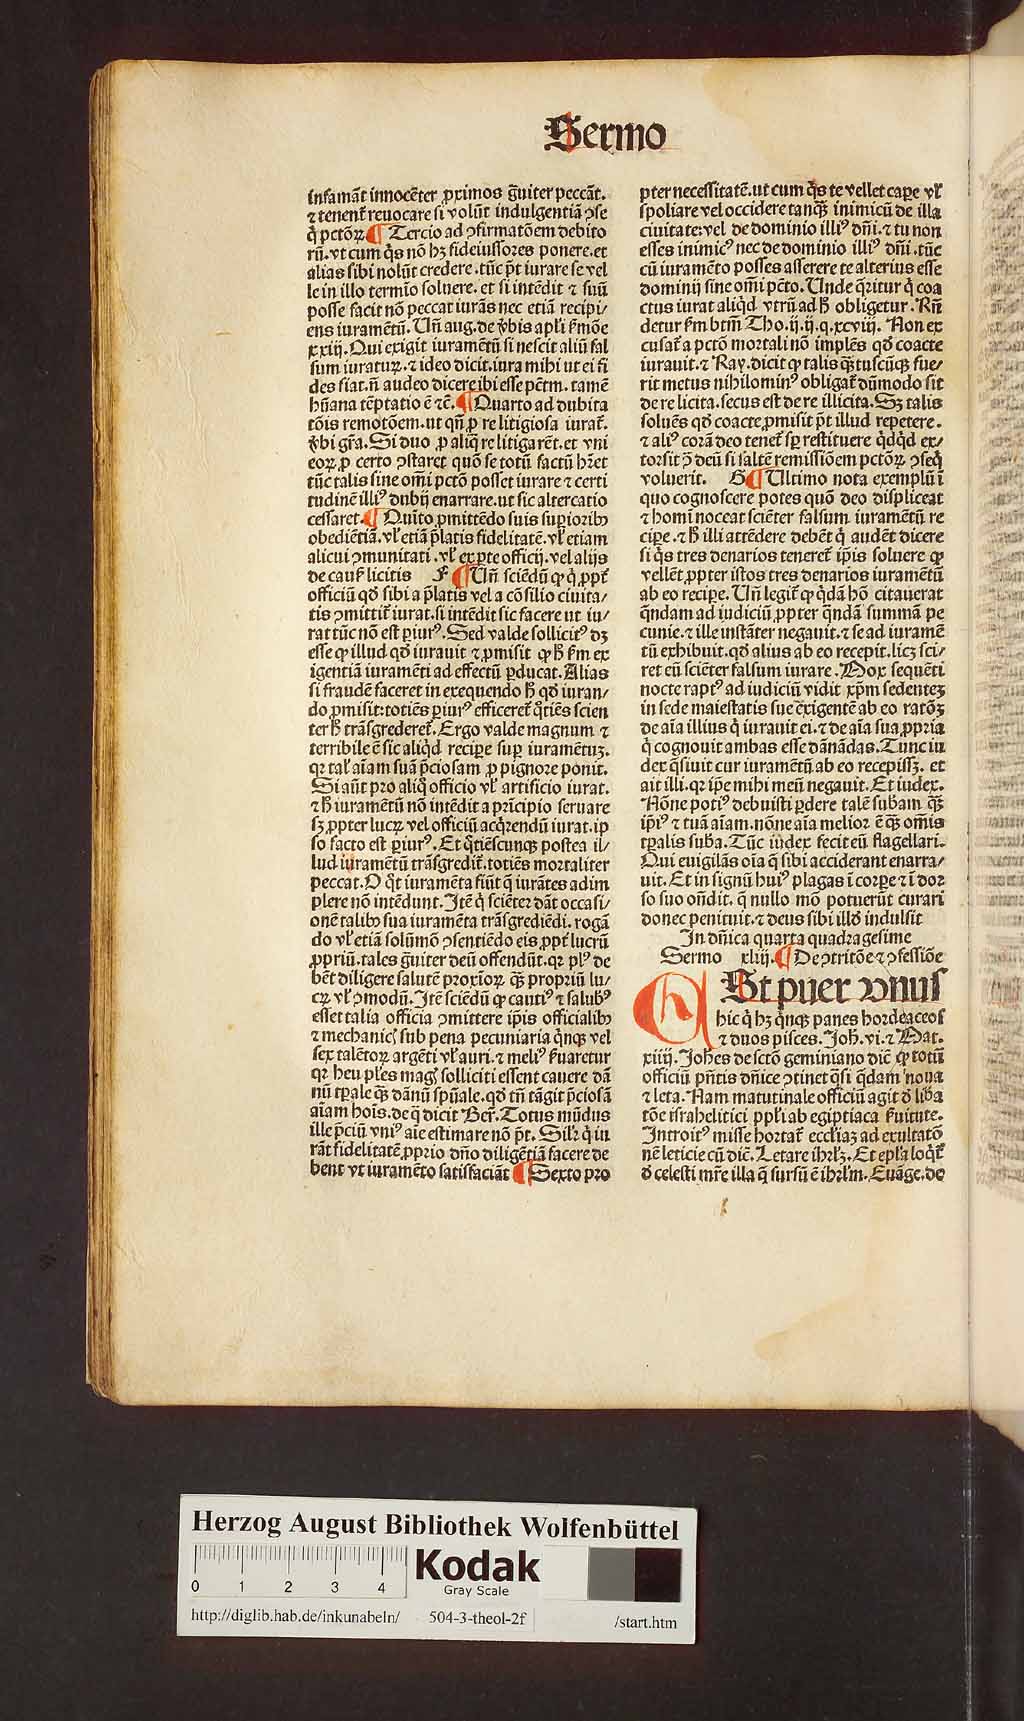 Sermo
infamāt innocēter ꝓximos g̃uiter peccāt.
⁊ tenenẗ reuocare si volūt indulgentiā ꝯse
q̇ pctōꝝ ¶ Tercio ad ꝯfirmatōem debito
rū. vt cum q̇s nō hꝫ fideiussores ponere. et
alias sibi nolūt credere. tūc p̄t iurare se vel
le in illo termīo soluere. et si intēdit ⁊ suū
posse facit nō peccat iurās nec etiā recipi/
ens iuramētū. Uñ aug. de v̓bis apl̓i ẜmōe
xxiij. Qui exigit iuramētū si nescit aliū fal
sum iuraturꝫ. ⁊ ideo dicit. iura mihi ut ei fi
des siat. ñ audeo dicere ibi esse pc̄tm. tamē
hūana tēptatio ē ⁊c̄. ¶ Quarto ad dubita
tōis remotōem. ut qn̄ ꝓ re litigiosa iuraẗ.
v̓bi gr̄a. Si duo ꝓ aliq̄ re litigarēt. et vni
eoꝝ ꝓ certo ꝯstaret quō se totū factū hr̄et
tūc talis sine om̄i pctō posset iurare ⁊ certi
tudinē illiꝰ dubij enarrare. ut sic altercatio
cessaret. ¶ Quīto ꝓmittēdo suis suꝑioribꝰ
obediētiā. vl̓ etiā p̄latis fidelitatē. vl̓ etiam
alicui ꝯmunitati. vl̓ ex ꝑte officij. vel alijs
de causꝭ licitis F ¶ Uñ sciēdū ꝙ q̇ ꝓpẗ
officiū qd̓ sibi a p̄latis vel a cōsilio ciuita/
tis ꝯmittiẗ iurat. si intēdit sic facere ut iu/
rat tūc nō est ꝑiurꝰ. Sed valde sollicitꝰ dꝫ
esse ꝙ illud qd̓ iurauit ⁊ ꝓmisit ꝙ h̓ ẜm ex
igentiā iuramēti ad effectū ꝑducat. Alias
si fraudē faceret in exequendo h̓ qd̓ iuran/
do ꝓmisit: totiēs ꝑiurꝰ efficereẗ q̊tiēs scien
ter h̓ trāsgredereẗ. Ergo valde magnum ⁊
terribile ē sic aliq̇d reciꝑe suꝑ iuramētuꝫ.
qꝛ tal̓ aīam suā p̄ciosam ꝓ pignore ponit.
Si aūt pro aliq̊ officio vl̓ artificio iurat.
⁊ h̓ iuramētū nō intēdit a prīcipio seruare
sꝫ ꝓpter lucꝝ vel officiū acq̇rendū iurat. ip
so facto est ꝑiurꝰ. Et q̊tiēscunqꝫ postea il/
lud iuramētū trāsgrediẗ. totiēs mortaliter
peccat. O q̊t iuramēta fiūt q̄ iurātes adim
plere nō intēdunt. Itē q̇ sciēter dāt occasi/
onē talibꝰ sua iuramēta trāsgrediēdi. rogā
do vl̓ etiā solūmō ꝯsentiēdo eis ꝓpẗ lucrū
ꝓpriū. tales g̃uiter deū offendūt. qꝛ plꝰ de
bēt diligere salutē proxīoꝝ qꝫ̄ propriū lu/
cꝝ vl̓ ꝯmodū. Itē sciēdū ꝙ cautiꝰ ⁊ salubꝰ
esset talia officia ꝯmittere ip̄is officialibꝰ
⁊ mechanicꝭ sub pena pecuniaria q̇nqꝫ vel
sex talētoꝝ argēti vl̓ auri. ⁊ meliꝰ ẜuaretur
qꝛ heu pl̓es magꝭ solliciti essent cauere dā
nū tꝑale qꝫ̄ dānū spūale. qd̓ tn̄ tāgit p̄ciosā
aīam hoīs. de q̄ dicit Ber̄. Totus mūdus
ille p̄ciū vniꝰ aīe estimare nō p̄t. Silr̄ q̇ iu
rāt fidelitatē ꝓprio dn̄o diligētiā facere de
bent vt iuramēto satisfaciāt ¶ Sexto pro
pter necessitatē. ut cum q̇s te vellet caꝑe vl̓
spoliare vel occidere tanqꝫ̄ inimicū de illa
ciuitate: vel de dominio illiꝰ dn̄i. ⁊ tu non
esses inimicꝰ nec de dominio illiꝰ dn̄i. tūc
cū iuramēto posses asserere te alterius esse
dominij sine om̄i pctō. Unde q̄ritur q̇ coa
ctus iurat aliq̇d vtrū ad h̓ obligetur. Rn̄
detur ẜm btm̄ Tho. ij. ij. q. xcviij. Non ex
cusaẗ a pctō mortali nō implēs qd̓ coacte
iurauit. ⁊ Ray. dicit ꝙ talis qꝫ̄tuscūqꝫ fue/
rit metus nihilominꝰ obligaẗ dūmodo sit
de re licita. secus est de re illicita. Sꝫ talis
soluēs qd̓ coacte ꝓmisit p̄t illud repetere.
⁊ aliꝰ corā deo teneẗ sp̄ restituere q̇dq̇d ex/
torsit ꝯ̄ deū si saltē remissiōem pctōꝝ ꝯseq̇
voluerit. G ¶ Ultimo nota exemplū ī
quo cognoscere potes quō deo displiceat
⁊ homi noceat sciēter falsum iuramētū re
ciꝑe. ⁊ h̓ illi attēdere debēt q̇ audēt dicere
si q̇s tres denarios tenereẗ ip̄is soluere ꝙ
vellēt ꝓpter istos tres denarios iuramētū
ab eo reciꝑe. Uñ legiẗ ꝙ q̇dā hō citauerat
q̄ndam ad iudiciū ꝓpter q̄ndā summā pe
cunie. ⁊ ille instāter negauit. ⁊ se ad iuramē
tū exhibuit. qd̓ alius ab eo recepit. licꝫ sci/
ret eū sciēter falsum iurare. Nox sequēti
nocte raptꝰ ad iudiciū vidit xp̄m sedenteꝫ
in sede maiestatis sue exigentē ab eo ratōꝫ
de aīa illius q̇ iurauit ei. ⁊ de aīa sua ꝓpria
q̇ cognouit ambas esse dānādas. Tunc iu
dex q̄siuit cur iuramētū ab eo recepissꝫ. et
ait illi. qꝛ ip̄e mihi meū negauit. Et iudex.
Nōne potiꝰ debuisti ꝑdere talē subām qꝫ̄
ip̄iꝰ ⁊ tuā aīam. nōne aīa melior ē qꝫ̄ om̄is
tꝑalis suba. Tūc iudex fecit eū flagellari.
Qui euigilās oīa q̄ sibi acciderant enarra/
uit. Et in signū huiꝰ plagas ī corꝑe ⁊ ī dor
so suo on̄dit. q̄ nullo mō potuerūt curari
donec penituit. ⁊ deus sibi illd̓ indulsit
In dn̄ica quarta quadragesime
Sermo xliij. ¶ De ꝯtritōe ⁊ ꝯfessiōe
Est puer vnus
hic q̇ hꝫ q̇nqꝫ panes hordeaceos
⁊ duos pisces. Joh̄. vi. ⁊ Mat.
xiiij. Joh̄es de sctō geminiano dic̄ ꝙ totū
officiū pn̄tis dn̄ice ꝯtinet q̄si q̄dam noua
⁊ leta. Nam matutinale officiū agit d̓ liba
tōe israhelitici ppl̓i ab egiptiaca ẜuitute.
Introitꝰ misse hortaẗ eccl̓iaꝫ ad exultatō
nē leticie cū dic̄. Letare ihrl̓ꝫ. Et epl̓a loq̇ẗ
d̓ celesti mr̄e illa q̄ sursū ē ihrl̓m. Euāge. de
Herzog August Bibliothek Wolfenbüttel
0 1 2 3 4
Kodak
Gray Scale
http://diglib.hab.de/inkunabeln/ 504-3-theol-2f /start.htm